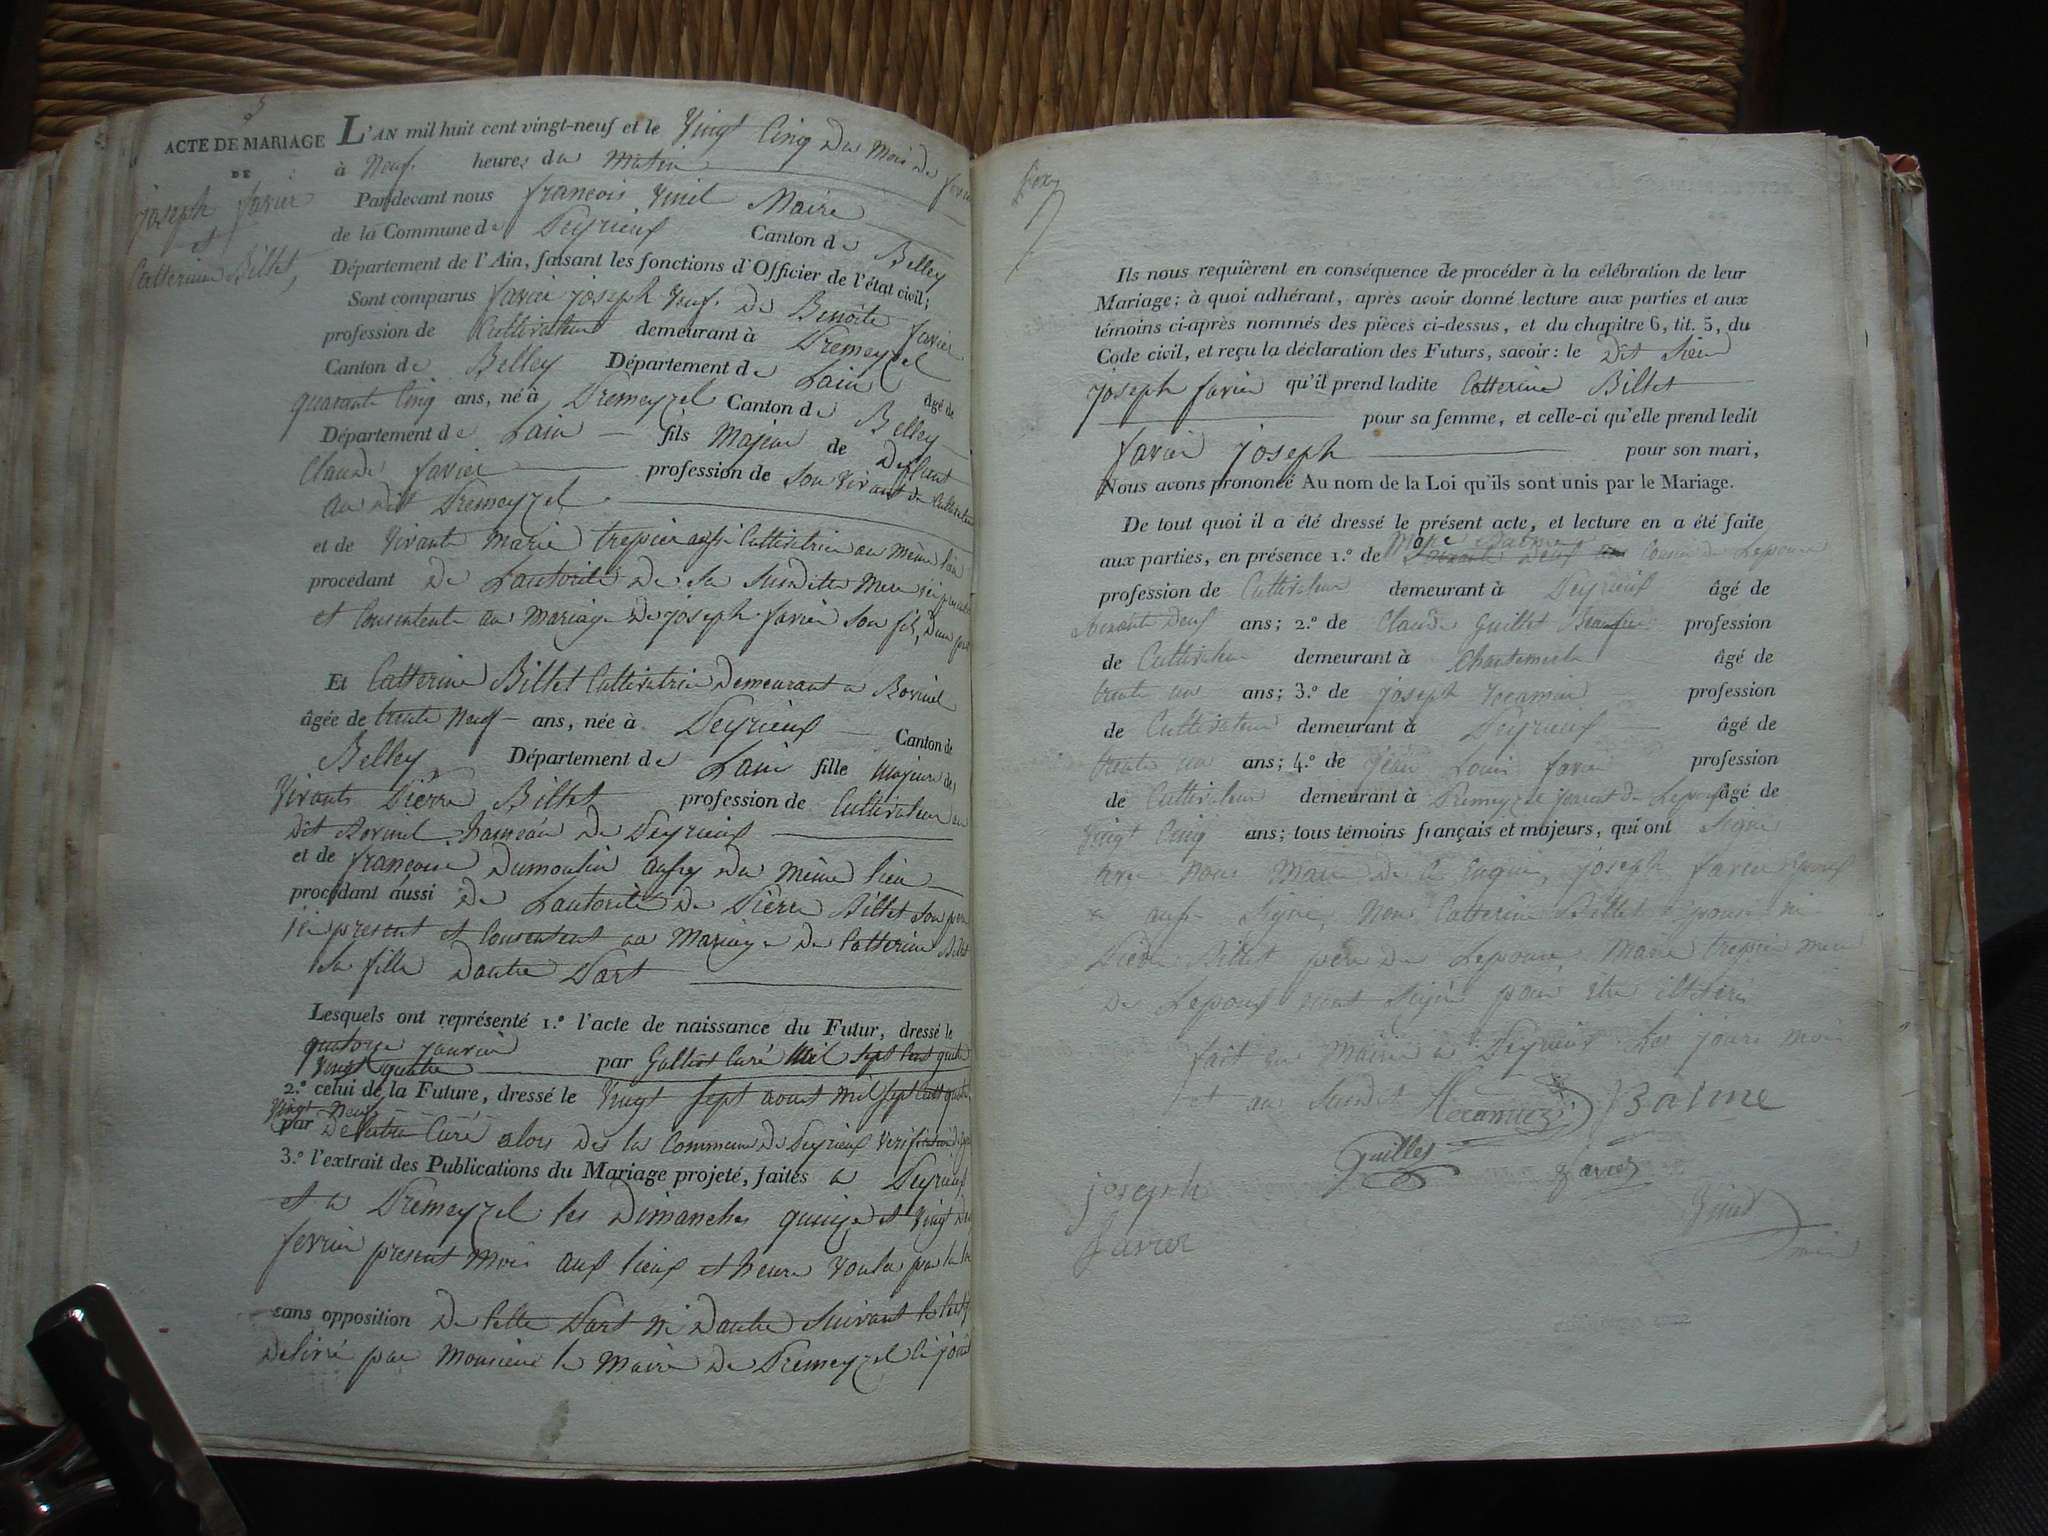 5
ACTE DE MARIAGE
DE
joseph favier
et
Catterine Billet
L'AN mil huit cent vingt-neuf et le Vingt Cinq du Mois de
à Neuf heures du matin
Pardevant nous francois Vinet Maire
de la Commune de Peyrieux Canton de Belley
Département de l'Ain, faisant les fonctions d'Officier de l'état civil;
Sont comparus favier joseph Veuf de Benoite favier
profession de Cultivateur demeurant à Premeyzel
Canton de Belley Département de Lain âgé de
quarante Cinq ans, né à Premeyzel Canton de Belley
Département de Lain fils Majeur de Deffunt
Claude favier profession de Son Vivant de Cultivateur
au dit Premeyzel
et de Vivante Marie trepier aussi Cultivatrice au même lieu
procedant de Lautorité de sa Susditte Mere ici presente
et Consentente au Mariage de joseph favier Son fils, Dune part
Et Catterine Billet Cultivatrice Demeurant a Borinel
âgée de trente Neuf ans, née à Peyrieux Canton de
Belley Département de Lain fille Majeure des
Vivants Pierre Billet profession de Cultivateur au
dit hameau de Peyrieux
et de francoise Dumoulin aussy du même lieu
procédant aussi de Lautorité de Pierre Billet Son pere
ici present et Consentent au Mariage de Catterine Billet
sa fille Dautre Part
Lesquels ont représenté 1.º l'acte de naissance du Futur, dressé le
quatorze janvier
Vingt quatre par Curé Mil Sept Cent quatre
2.º celui de la Future, dressé le Vingt Sept aout Mil Sept Cent quatre
Vingt Neuf
par Curé alors de la Commune de Peyrieux
3.º l'extrait des Publications du Mariage projeté, faites a Peyrieux
et a Premeyzel les Dimanches quinze et Vingt Deux
fevrier present Mois aux lieux et heure Voulu par la loi
sans opposition de Cette Part Ni Dautre Suivant le Certif
Delivré par Monsieur le Maire de Premeyzel Ce jour
Ils nous requièrent en conséquence de procéder à la célébration de leur
Mariage; à quoi adhérant, après avoir donné lecture aux parties et aux
témoins ci-après nommés des pièces ci-dessus, et du chapitre 6, tit. 5, du
Code civil, et reçu la déclaration des Futurs, savoir: le dit Sieur
joseph favier qu'il prend ladite Catterine Billet
pour sa femme, et celle-ci qu'elle prend ledit
favier joseph pour son mari,
Nous avons prononcé Au nom de la Loi qu'ils sont unis par le Mariage.
De tout quoi il a été dressé le présent acte, et lecture en a été faite
aux parties, en présence 1.º de Cousin de Lepouse
profession de Cultivateur demeurant à Peyrieux âgé de
Soixante Neuf ans; 2.º de Claude Guillet profession
de Cultivateur demeurant à Chantemerle âgé de
trente un ans; 3.º de joseph recamier profession
de Cultivateur demeurant à Peyrieux âgé de
trente un ans; 4.º de jean Louis favier profession
de Cultivateur demeurant à Premeyzel parent de Lepoux âgé de
Vingt Cinq ans; tous témoins français et majeurs, qui ont Signé
avec Nous Maire de Ce enquis, joseph favier
a aussi Signé, Non Catterine Billet epouse ni
Pierre Billet pere de Lepouse Marie trepier mere
de Lepoux pour être illiteré
fait en Mairie a Peyrieux Les jours mois
et an Susdit Recamiez Balme
Guillet favier
joseph
favier
Vinet
maire